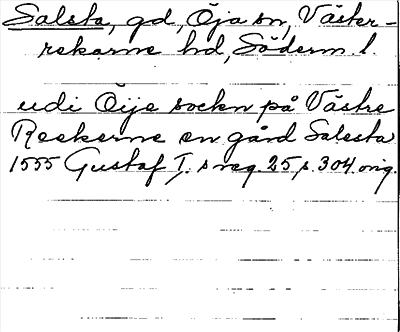 Salsta, gd, Öja sn, Väster-
rekarne hd, Söderm. l.
udi Öije sockn på Västre
Reekerne en gård Salesta
1555 Gustaf I. s reg. 25 s. 304. orig.